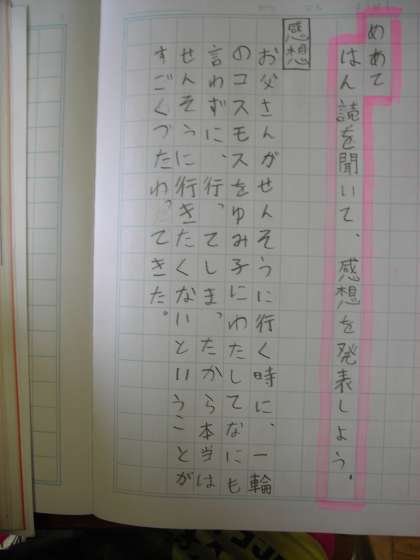 めあて
はん読を聞いて、感想を発表しよう。
感想
お父さんがせんそうに行く時に、一輪
のコスモスをゆみ子にわたしてなにも
言わずに、行ってしまったから本当は
せんそうに行きたくないということが
すごくつたわってきた。